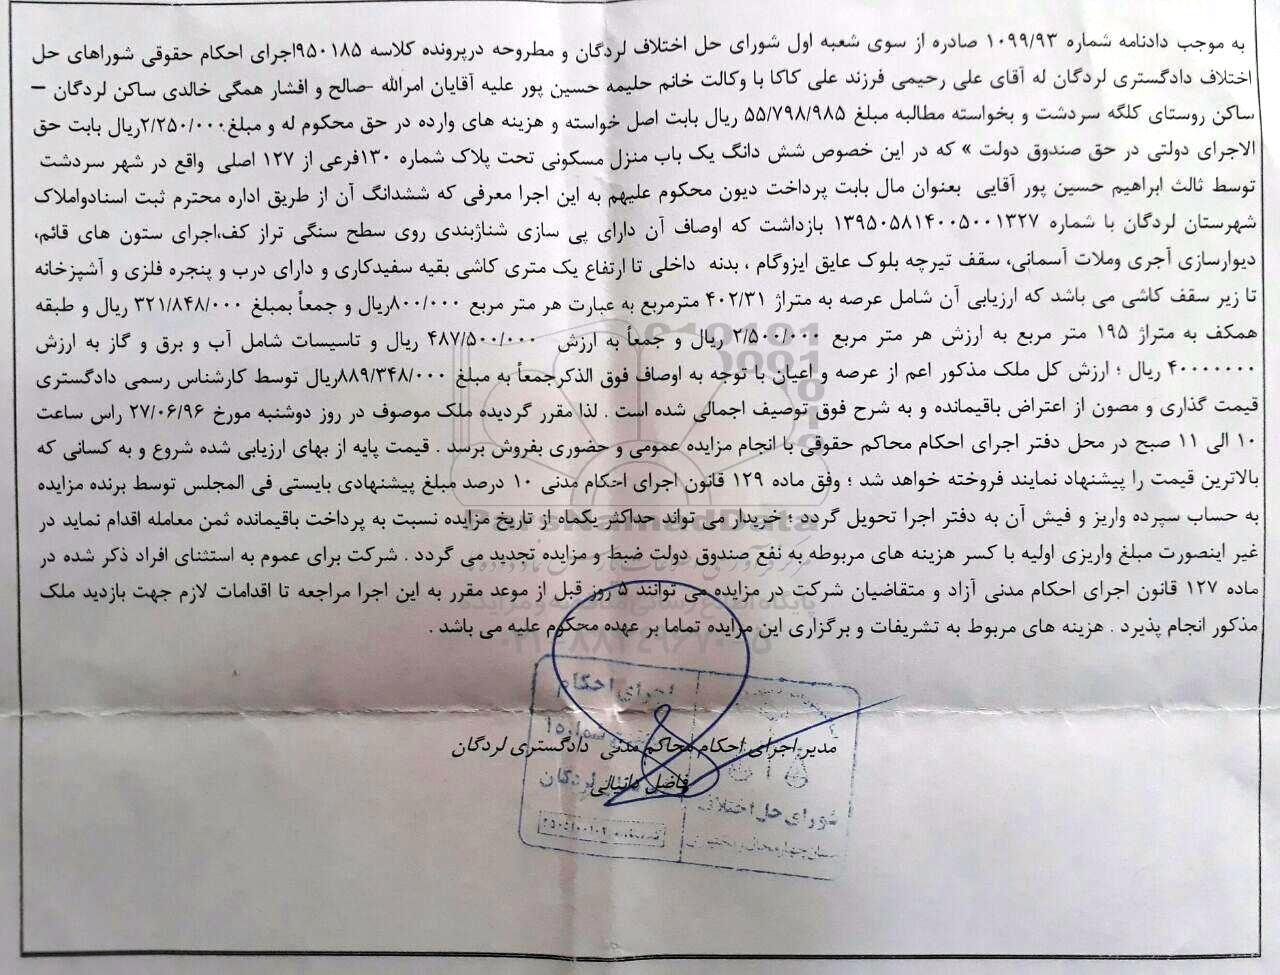 به موجب دادنامه شماره ۱۰۹۹/۹۳ صادره از سوی شعبه اول شورای حل اختلاف لردگان و مطروحه درپرونده کلاسه ۹۵۰۱۸۵اجرای احکام حقوقی شوراهای حل
اختلاف دادگستری لردگان له آقای علی رحیمی فرزند علی کاکا با وکالت خانم حلیمه حسین پور علیه آقایان امرالله -صالح و افشار همگی خالدی ساکن لردگان –
ساکن روستای کلگه سردشت و بخواسته مطالبه مبلغ ۵۵/۷۹۸/۹۸۵ ریال بابت اصل خواسته و هزینه های وارده در حق محکوم له و مبلغ۲/۲۵۰/۰۰۰ریال بابت حق
الاجرای دولتی در حق صندوق دولت » که در این خصوص شش دانگ یک باب منزل مسکونی تحت پلاک شماره ۱۳۰فرعی از ۱۲۷ اصلی واقع در شهر سردشت
توسط ثالث ابراهیم حسین پور آقایی بعنوان مال بابت پرداخت دیون محکوم علیهم به این اجرا معرفی که ششدانگ آن از طریق اداره محترم ثبت اسنادواملاک
شهرستان لردگان با شماره ۱۳۹۵۰۵۸۱۴۰۰۵۰۰۱۳۲۷ بازداشت که اوصاف آن دارای پی سازی شناژبندی روی سطح سنگی تراز کف،اجرای ستون های قائم،
دیوارسازی آجری وملات آسمانی، سقف تیرچه بلوک عایق ایزوگام ، بدنه داخلی تا ارتفاع یک متری کاشی بقیه سفیدکاری و دارای درب و پنجره فلزی و آشپزخانه
تا زیر سقف کاشی می باشد که ارزیابی آن شامل عرصه به متراژ ۴۰۲/۳۱ مترمربع به عبارت هر متر مربع ۸۰۰/۰۰۰ریال و جمعاً بمبلغ ۳۲۱/۸۴۸/۰۰۰ ریال و طبقه
همکف به متراژ ۱۹۵ متر مربع به ارزش هر متر مربع ۲/۵۰۰/۰۰۰ ریال و جمعاً به ارزش ۴۸۷/۵۰۰/۰۰۰ ریال و تاسیسات شامل آب و برق و گاز به ارزش
۴۰۰۰۰۰۰۰ ریال ؛ ارزش کل ملک مذکور اعم از عرصه و اعیان با توجه به اوصاف فوق الذکرجمعاً به مبلغ ۸۸۹/۳۴۸/۰۰۰ریال توسط کارشناس رسمی دادگستری
قیمت گذاری و مصون از اعتراض باقیمانده و به شرح فوق توصیف اجمالی شده است . لذا مقرر گردیده ملک موصوف در روز دوشنبه مورخ ۲۷/۰۶/۹۶ راس ساعت
۱۰ الی ۱۱ صبح در محل دفتر اجرای احکام محاکم حقوقی با انجام مزایده عمومی و حضوری بفروش برسد . قیمت پایه از بهای ارزیابی شده شروع و به کسانی که
بالاترین قیمت را پیشنهاد نمایند فروخته خواهد شد ؛ وفق ماده ۱۲۹ قانون اجرای احکام مدنی ۱۰ درصد مبلغ پیشنهادی بایستی فی المجلس توسط برنده مزایده
به حساب سپرده واریز و فیش آن به دفتر اجرا تحویل گردد ؛ خریدار می تواند حداکثر یکماه از تاریخ مزایده نسبت به پرداخت باقیمانده ثمن معامله اقدام نماید در
غیر اینصورت مبلغ واریزی اولیه با کسر هزینه های مربوطه به نفع صندوق دولت ضبط و مزایده تجدید می گردد . شرکت برای عموم به استثنای افراد ذکر شده در
ماده ۱۲۷ قانون اجرای احکام مدنی آزاد و متقاضیان شرکت در مزایده می توانند ۵ روز قبل از موعد مقرر به این اجرا مراجعه تا اقدامات لازم جهت بازدید ملک
مذکور انجام پذیرد . هزینه های مربوط به تشریفات و برگزاری این مزایده تماما بر عهده محکوم علیه می باشد .
مدیر اجرای احکام محاکم مدنی دادگستری لردگان
فاضل دانیالی
اجرای احکام
شماره ۱
لردگان
شورای حل اختلاف
ParsNamadData